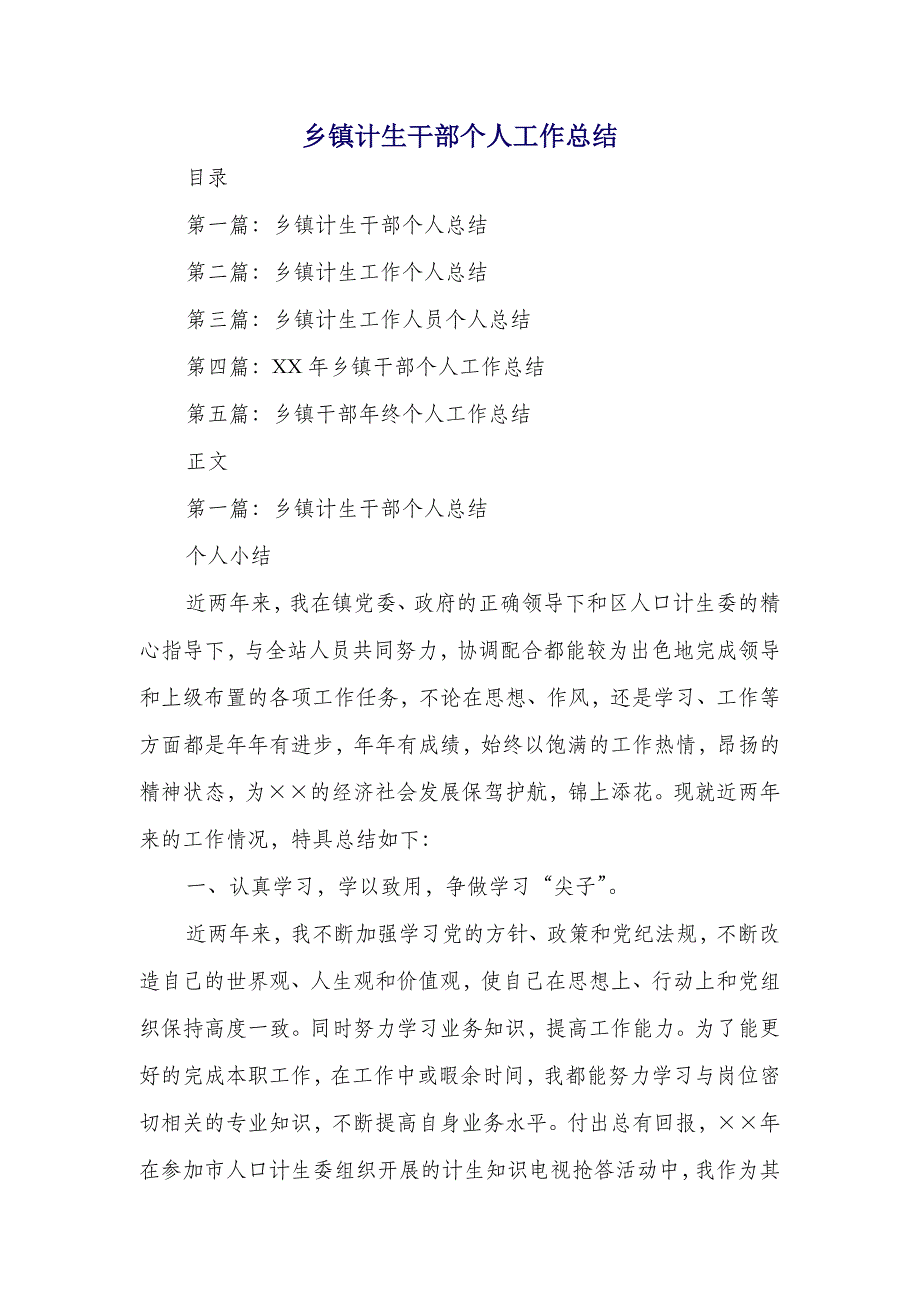 乡镇计生干部个人工作总结
目录
第一篇：乡镇计生干部个人总结
第二篇：乡镇计生工作个人总结
第三篇：乡镇计生工作人员个人总结
第四篇：XX 年乡镇干部个人工作总结
第五篇：乡镇干部年终个人工作总结
正文
第一篇：乡镇计生干部个人总结
个人小结
近两年来，我在镇党委、政府的正确领导下和区人口计生委的精
心指导下，与全站人员共同努力，协调配合都能较为出色地完成领导
和上级布置的各项工作任务，不论在思想、作风，还是学习、工作等
方面都是年年有进步，年年有成绩，始终以饱满的工作热情，昂扬的
精神状态，为××的经济社会发展保驾护航，锦上添花。现就近两年
来的工作情况，特具总结如下：
一、认真学习，学以致用，争做学习“尖子”。
近两年来，我不断加强学习党的方针、政策和党纪法规，不断改
造自己的世界观、人生观和价值观，使自己在思想上、行动上和党组
织保持高度一致。同时努力学习业务知识，提高工作能力。为了能更
好的完成本职工作，在工作中或暇余时间，我都能努力学习与岗位密
切相关的专业知识，不断提高自身业务水平。付出总有回报，××年
在参加市人口计生委组织开展的计生知识电视抢答活动中，我作为其